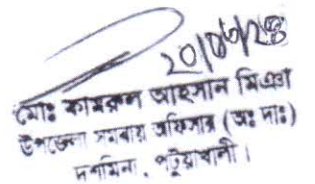 ২০/০৬/২৪
মোঃ কামরুল আহসান মিঞা
উপজেলা সমবায় অফিসার (অঃ দাঃ)
দশমিনা, পটুয়াখালী।